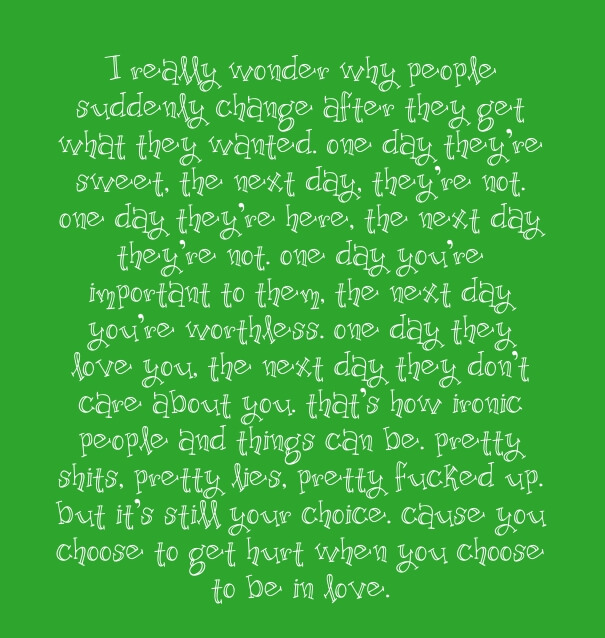 I really wonder why people
suddenly change after they get
what they wanted. one day they're
sweet, the next day, they're not.
one day they're here, the next day
they're not. one day you're
important to them, the next day
you're worthless. one day they
love you, the next day they don't
care about you. that's how ironic
people and things can be. pretty
shits, pretty lies, pretty fucked up.
but it's still your choice. cause you
choose to get hurt when you choose
to be in love.